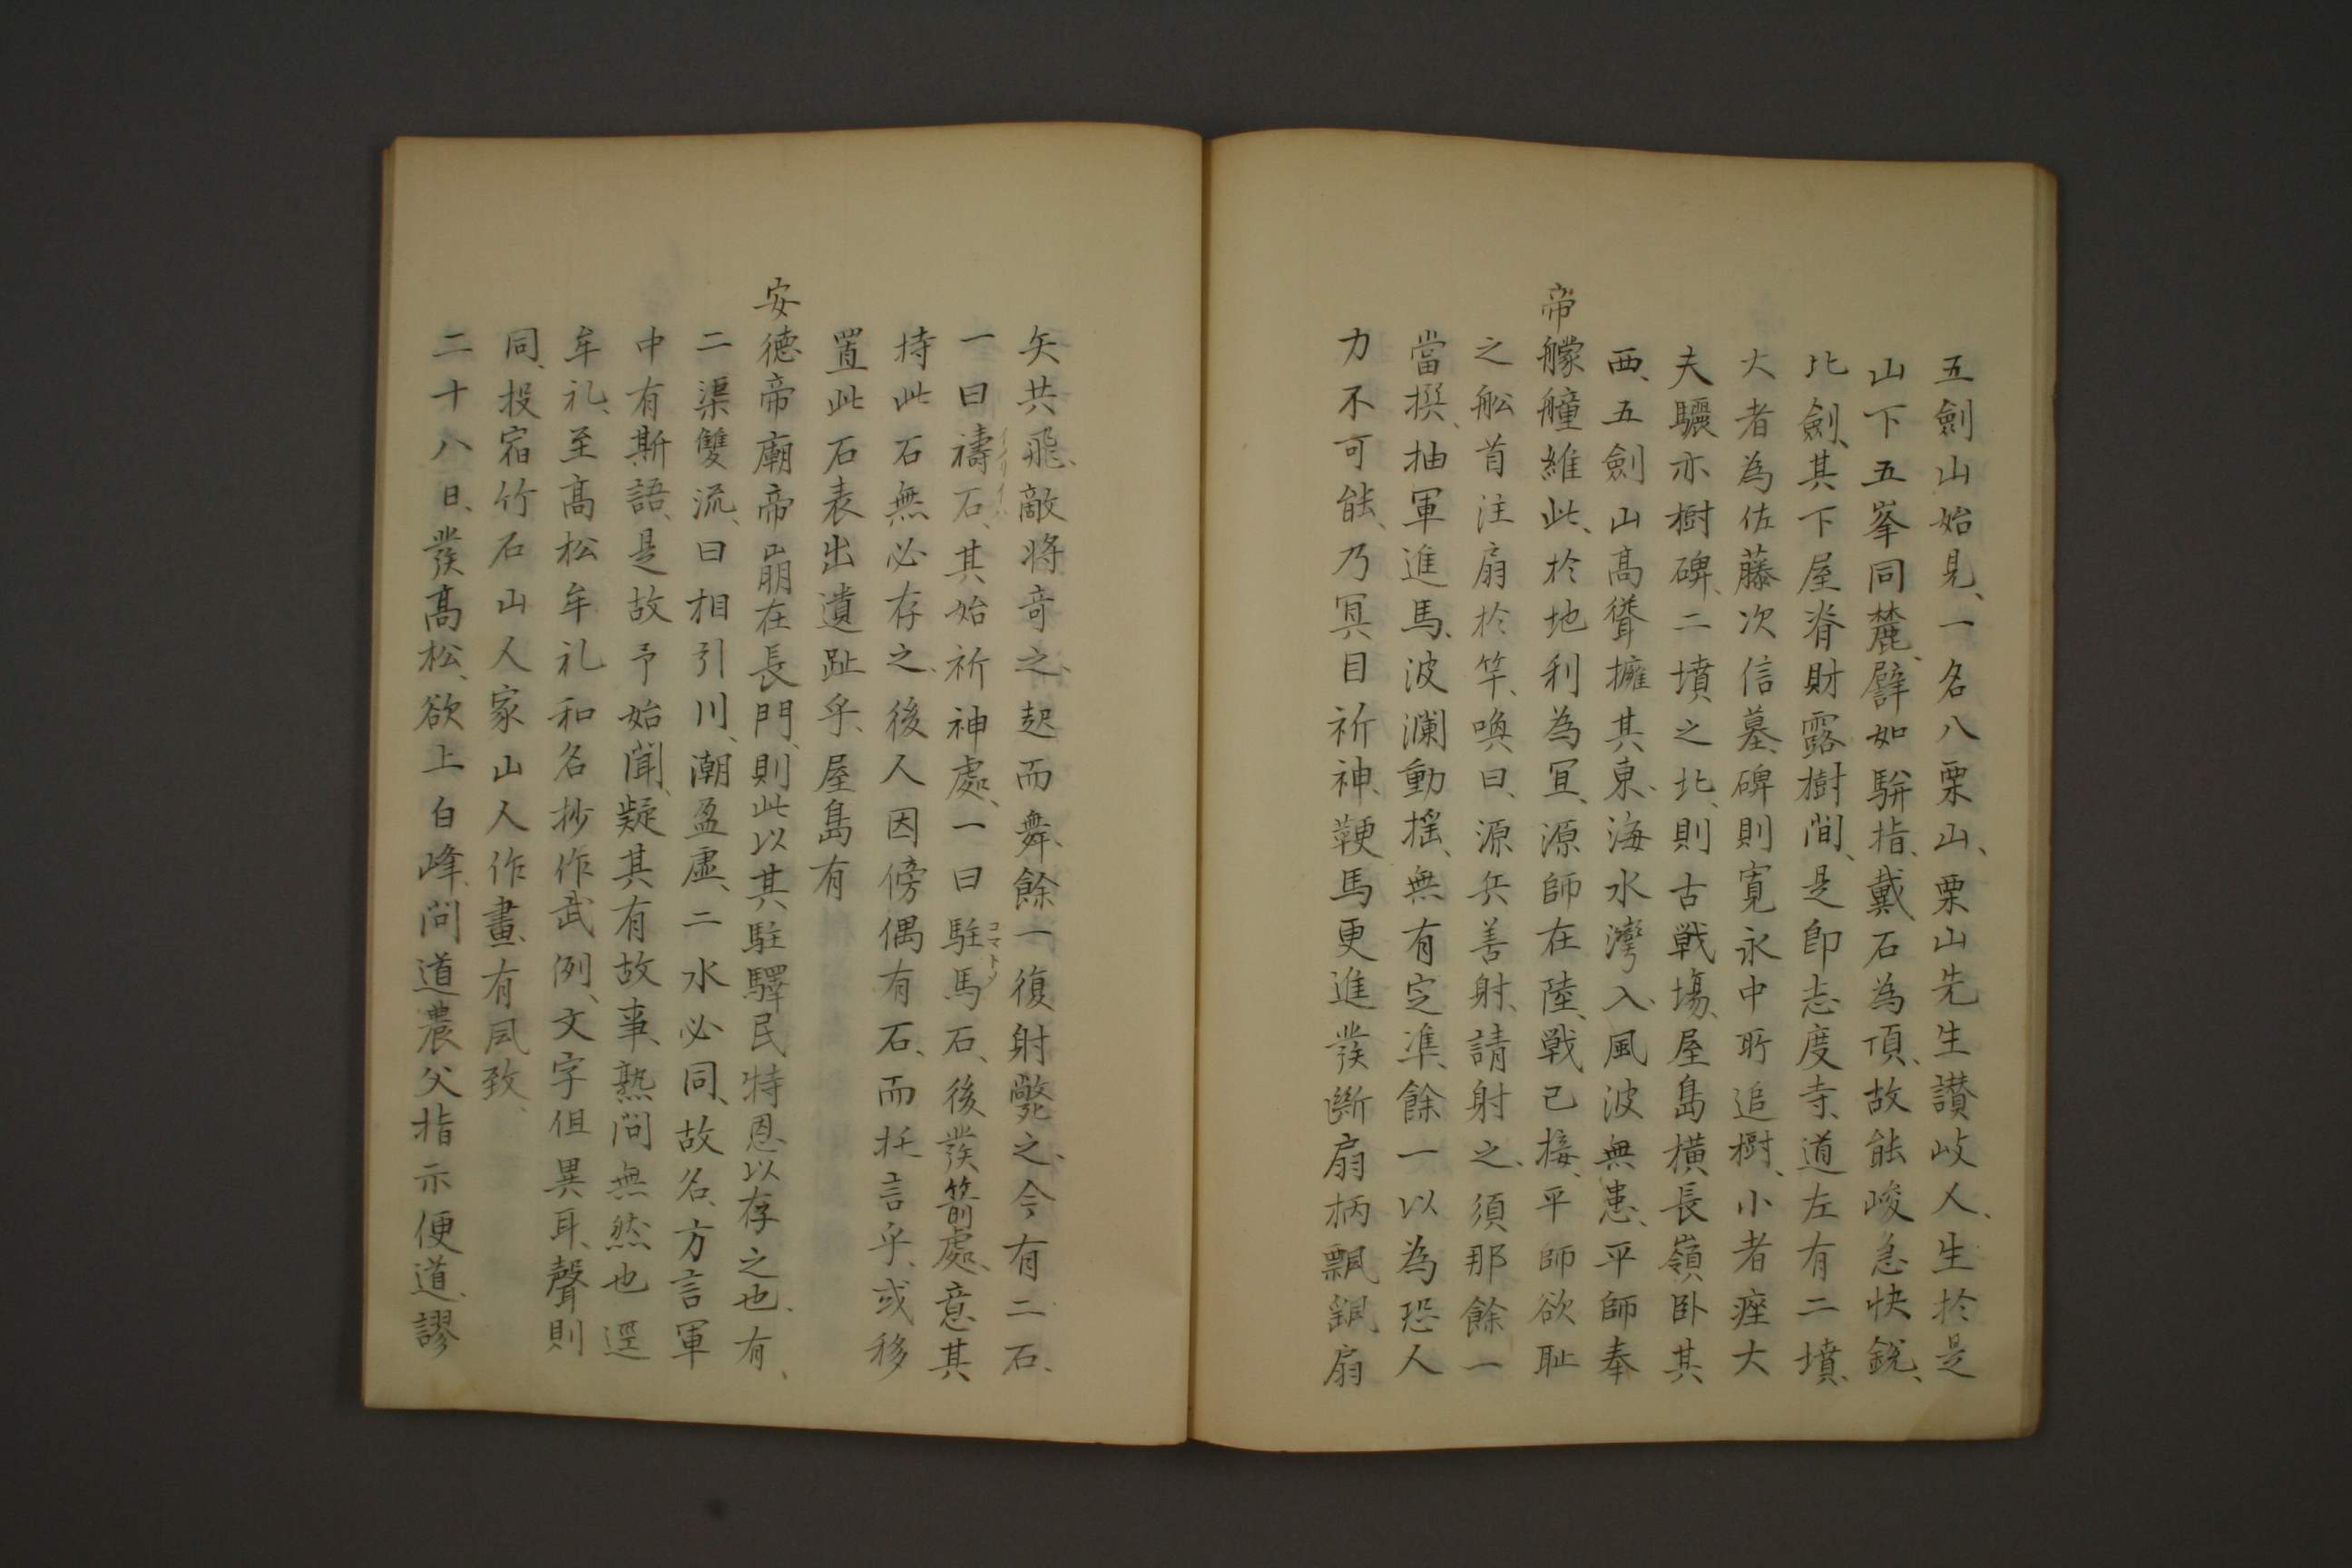 五劍山始見、一名八栗山、栗山先生讃岐人、生於是
山下五峯同麓、譬如駢指、戴石為頂、故能峻急快鋭、
比劍、其下屋脊財露樹間、是卽志度寺、道左有二墳、
大者為佐藤次信墓、碑則寛永中所追樹、小者瘞大
夫驪亦樹碑、二墳之北、則古戦場、屋島横長嶺臥其
西、五劍山高聳擁其東、海水灣入、風波無恙、平師奉
帝艨艟維此、於地利為冝、源師在陸、戦已接、平師欲耻
之舩首注扇於竿、喚曰、源兵善射、請射之、須那餘一
當撰、抽軍進馬、波瀾動揺、無有定準、餘一以為恐人
力不可能、乃冥目祈神、鞭馬更進發斷扇柄飄飄扇
矢共飛、敵将奇之、起而舞、餘一復射斃之、今有二石、
一曰禱石、其始祈神處、一曰駐馬石、後發箭處、意其
コマトメ
持此石無必存之、後人因傍偶有石、而托言乎、或移
置此石表出遺趾乎、屋島有
安徳帝廟帝崩在長門、則此以其駐驛民特恩以存之也、有、
二渠雙流、曰相引川、潮盈虚、二水必同、故名、方言軍
中有斯語、是故予始聞、疑其有故事、熟問無然也逕
牟礼、至髙松牟礼和名抄作武例、文字但異耳、聲則
同、投宿竹石山人家山人作畫、有風致、
二十八日、發髙松、欲上白峰、問道農父指示便道、謬